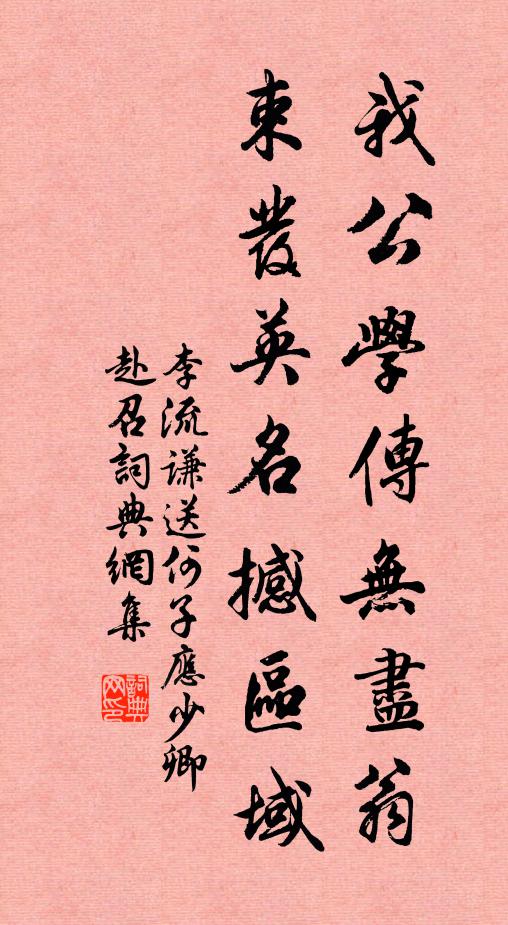 我公學傳無盡翁
束發英名撼區域
李流謙送何子應少卿
赴召詞典網集
詞典網印